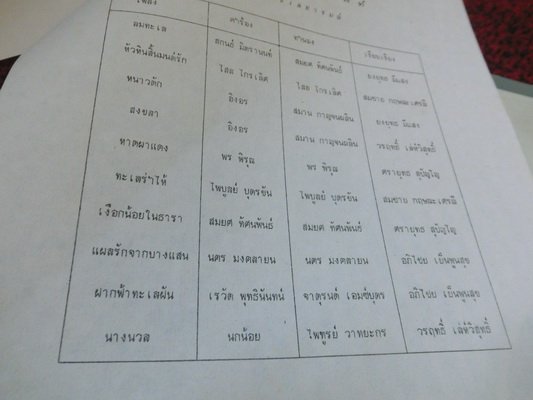 เพลง คำร้อง ทำนอง เรียบเรียง
ลมทะเล สกนธ์ มิตรานนท์ สมยศ ทัศนพันธ์ ยงยุทธ มีแสง
หัวหินสิ้นมนต์รัก ไสล ไกรเลิศ ไสล ไกรเลิศ สมชาย กฤษณะเศรณี
หนาวตัก อิงอร สมาน กาญจนผลิน ยงยุทธ มีแสง
สงขลา อิงอร สมาน กาญจนผลิน วรฤทธิ์ เล่ห์วิสุทธิ์
หาดผาแดง พร พิรุณ พร พิรุณ ตรายุทธ สุปัญโญ
ทะเลร่ำไห้ ไพบูลย์ บุตรขัน ไพบูลย์ บุตรขัน สมชาย กฤษณะเศรณี
เงือกน้อยในธารา สมยศ ทัศนพันธ์ สมยศ ทัศนพันธ์ ตรายุทธ สุปัญโญ
แผลรักจากบางแสน นคร มงคลายน นคร มงคลายน อภิไชย เย็นพูนสุข
ฝากฟ้าทะเลฝัน เรวัต พุทธินันทน์ จาตุรนต์ เอมซ์บุตร อภิไชย เย็นพูนสุข
นางนวล นกน้อย ไพฑูรย์ วาทยะกร วรฤทธิ์ เล่ห์วิสุทธิ์